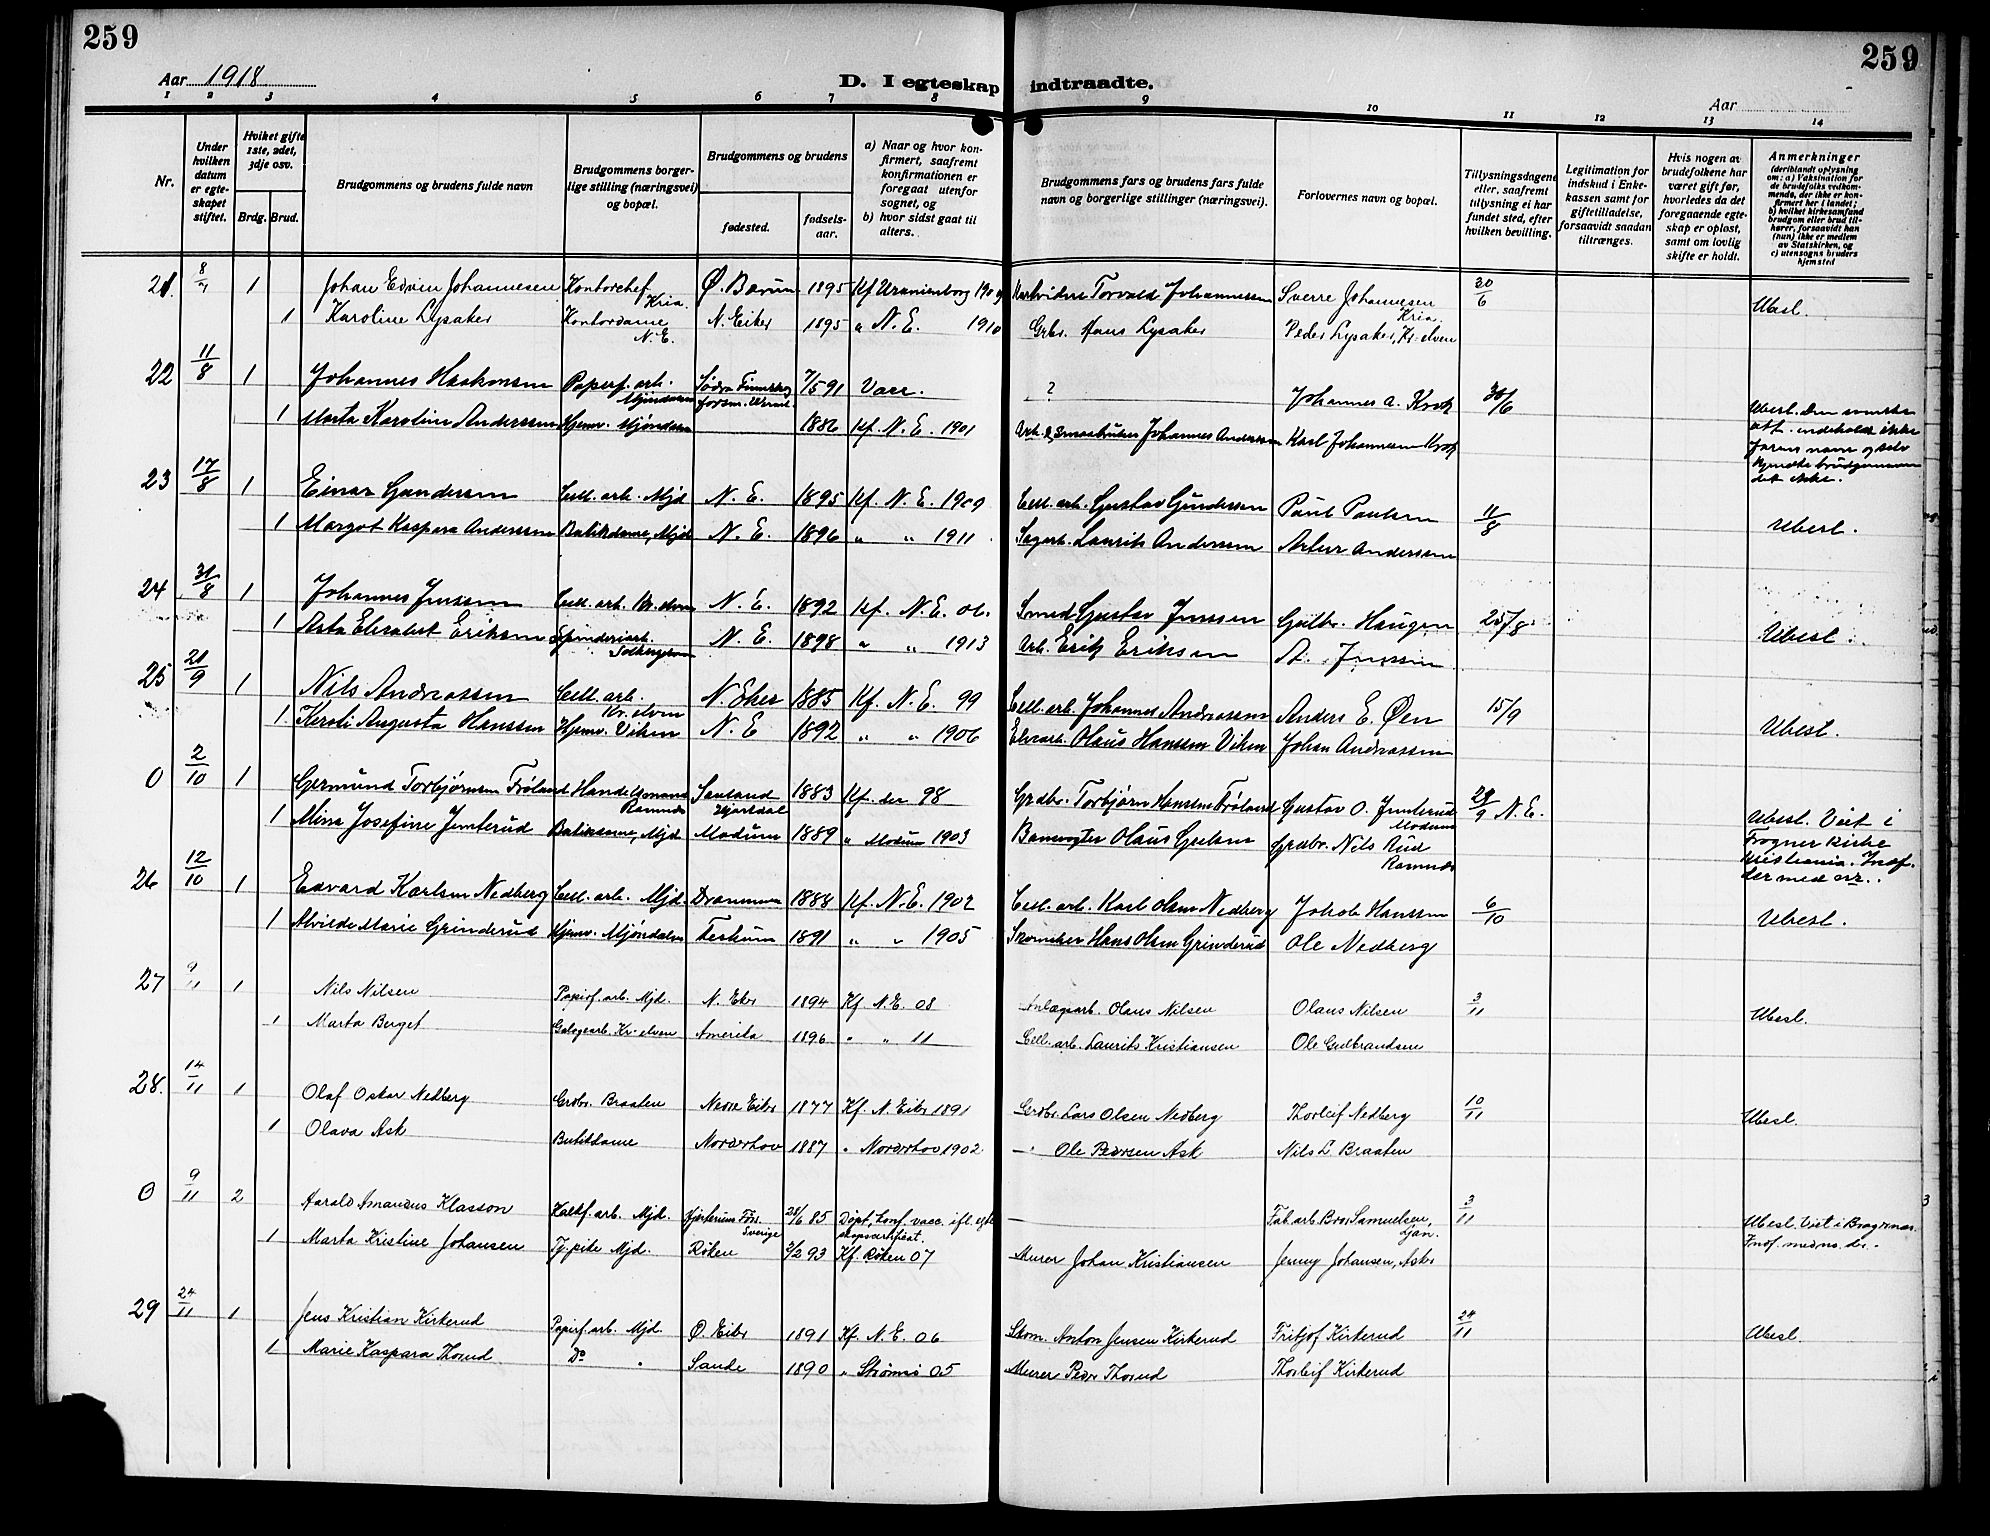 259
259
Aar 1918
D. I egteskap indtraadte.
Aar
1 2 3 4 5 6 7 8 9 10 11 12 13 14
Nr.
Under hvilken datum er egteskapet stiftet.
Hviket gifte 1ste, 2det, 3dje osv.
Brdg. Brud.
Brudgommens og brudens fulde navn
Brudgommens borgerlige stilling (næringsvei) og bopæl.
Brudgommens og brudens
fødested.
fødselsaar.
a) Naar og hvor konfirmert, saafremt konfirmationen er foregaat utenfor sognet, og
b) hvor sidst gaat til alters.
Brudgommens fars og brudens fars fulde navn og borgerlige stillinger (næringsvei).
Forlovernes navn og bopæl.
Tillysningsdagene eller, saafremt tillysning ei har fundet sted, efter hvilken bevilling.
Legitimation for indskud i Enkekassen samt for giftetilladelse, forsaavidt saadan tiltrænges.
Hvis nogen av brudefolkene har været gift før, hvorledes da det foregaaende egteskap er opløst, samt om lovlig skifte er holdt.
Anmerkninger (deriblandt oplysning om: a) Vaksination for de brudefolks vedkommende, der ikke er konfirmert her i landet; b) hvilket kirkesamfund brudgom eller brud tilhører, forsaavidt han (hun) ikke er medlem av Statskirken, og c) utensogns bruders hjemsted
21. 1 Johan Edvin Johannesen Kontorchef Kria. Ø. Bærum 1895 Kf Uranienborg 1909 Torvald Johannessen Sverre Johannesen Kria. 30/6 Ubesl.
1 Karoline Lysaker Kontordame N.E. N. Eiker 1895 " N. E. 1910 Grbr. Hans Lysaker Peder Lysaker, Kr.elven
22 11/8 1 Johannes Haakonsen Papirf. arb. Mjøndalen Södra Finnskog 7/5 91 Vacc. ? Johannes A. Krok 30/6 Ubesl. Den svenske att. indeholdt ikke farens navn og selv kjendte brudgommen det ikke.
1 Marta Karoline Anderssen Hjemv. Mjøndalen 1886 Kf. N.E. 1901 Arb. & Smaabruker Johannes Anderssen Karl Johannessen Krok
23 17/8 1 Einar Gundersen Cell. arb. Mjd N. E. 1895 Kf. N. E. 1909 Cell. arb. Gustav Gundersen Paul Paulsen 11/8 Ubesl.
1 Margot Kaspara Anderssen Butikdame, Mjd N. E. 1896 " " 1911 Sagarb. Laurits Anderssen Artur Anderssen
24 31/8 1 Johannes Jenssen Cell. arb. Kr. elven N. E. 1892 Kf. N.E. 06. Smed Gustav Jenssen Gulbr. Haugen 25/8 Ubesl.
1 Asta Elisabet Eriksen Spinderiarb. N. E. 1898 " " 1913 Arb. Erik Eriksen A. Jenssen
25 9 1 Nils Andreassen Cell. arb. Kr. elven N. Eker 1885 Kf. N. E. 99 Cell. arb. Johannes Andreassen Anders E. Øen 15/9 Ubesl.
1 Augusta Hanssen Hjemv. Viken N. E 1892 " " 1906 Elvearb. Olaus Hanssen Viken Johan Andreassen
0 2/10 1 Germund Torbjørnsen Frøland Handelsmand Ramnes Sauland Hjartdal 1883 Kf. der 98 Grdbr. Torbjørn Hanssen Frøland Gustav O. Jenterud Modum 29/9 N.E. Ubesl. Viet i Frogner Kirke Kristiania. Indf. der med nr.
1 Mina Josefine Jenterud Butikdame, Mjd. Modum 1889 " Modum 1903 Banevogter Olaus Grdbr. Nils Rud Ramnes
26 12/10 1 Edvard Karlsen Nedberg Cell. arb. Mjd. Drammen 1888 Kf. N.E. 1902 Cell. arb. Karl Olsen Nedberg Jakob Hanssen 6/10 Ubesl.
1 Alvilde Marie Grinderud Hjemv. Mjøndalen Feskum 1891 " " 1905 Skomaker Hans Olsen Grinderud Ole Nedberg
27 9/11 1 Nils Nilsen Papirf. arb. Mjd. N. Eker 1894 Kf N.E. 08 Anlægsarb. Olaus Nilsen Olaus Nilsen 3/11 Ubesl.
1 Marta Berget Kr. elven Amerika 1896 " " 11 Cell. arb. Laurits Kristiansen Ole Gulbrandsen
28. 14/11 1 Olaf Oskar Nedberg Grdbr. Braaten Nedre Eiker 1877 Kf. N. Eiker 1891 Grdbr. Lars Olsen Nedberg Thorleif Nedberg 10/11 Ubesl.
1 Olava Ask Butikdame Norderhov 1887 " Norderhov 1902 —" Ole Pedersen Ask Nils L. Braaten
0 9/11 2 Harald Amandus Klasson Kalkf. arb. Mjd. Sverige 28/6 85 Døpt, konf. vacc. ifl. egteskapscertificat. — Fab. arb Bror Samuelsen, Ljan. 3/11 Ubesl. Viet i Bragernes. Indf. med no. der.
1 Marta Kristine Johansen Tj.pike Mjd. Røken 2/2 93 Kf. Røken 07 Murer Johan Kristiansen Jenny Johansen, Asker
29 24/11 1 Jens Kristian Kirkerud Papirf. arb. Mjd. Ø. Eiker 1891 Kf. N. E. 06 Skom. Anton Jensen Kirkerud Fritjof Kirkerud 24/11 Ubesl.
1 Marie Kaspara Thorud Do " Sande 1890 " Strømsø 05 Murer Peder Thorud Thorleif Kirkerud